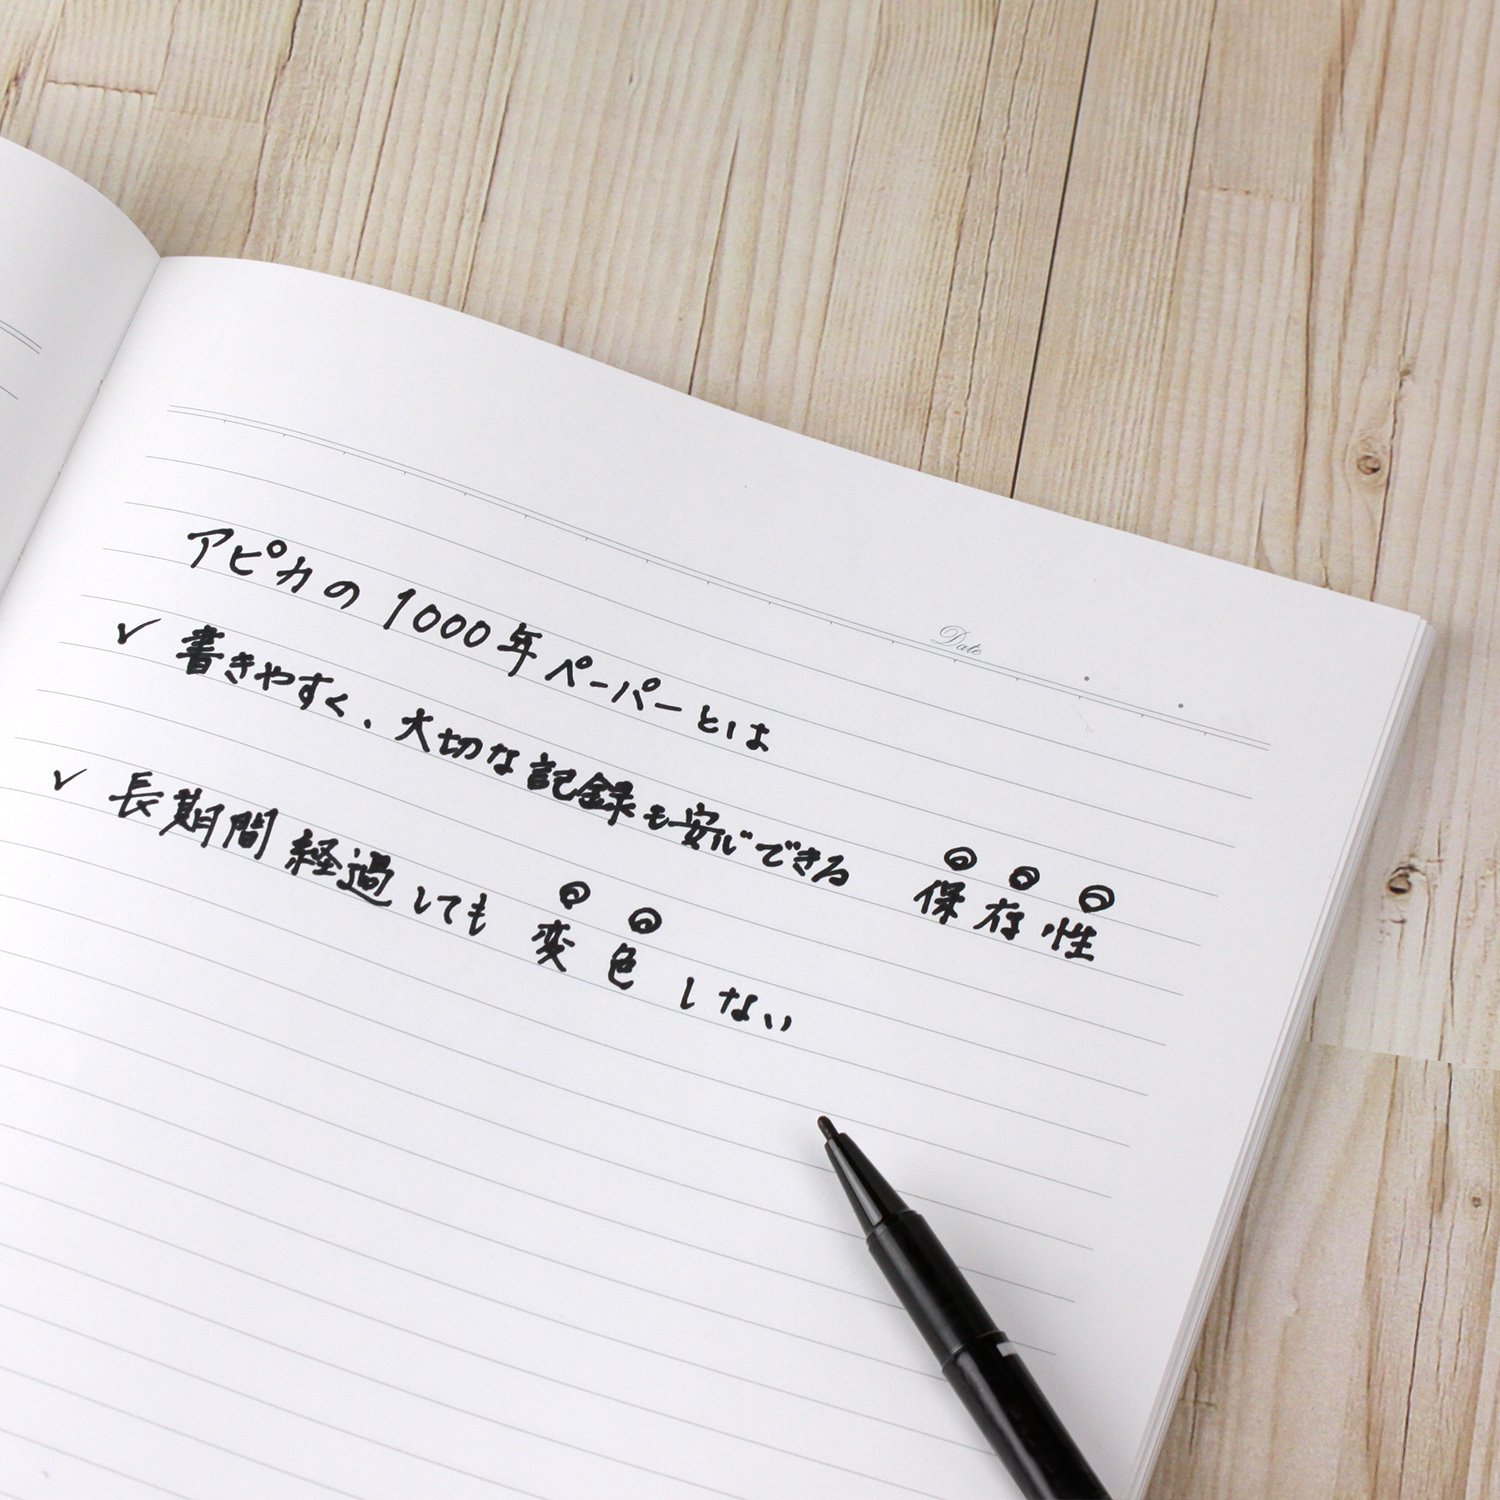 Date
アピカの1000年ペーパーとは
✓ 書きやすく、大切な記録も安心できる 保存性
✓ 長期間経過しても 変色しない